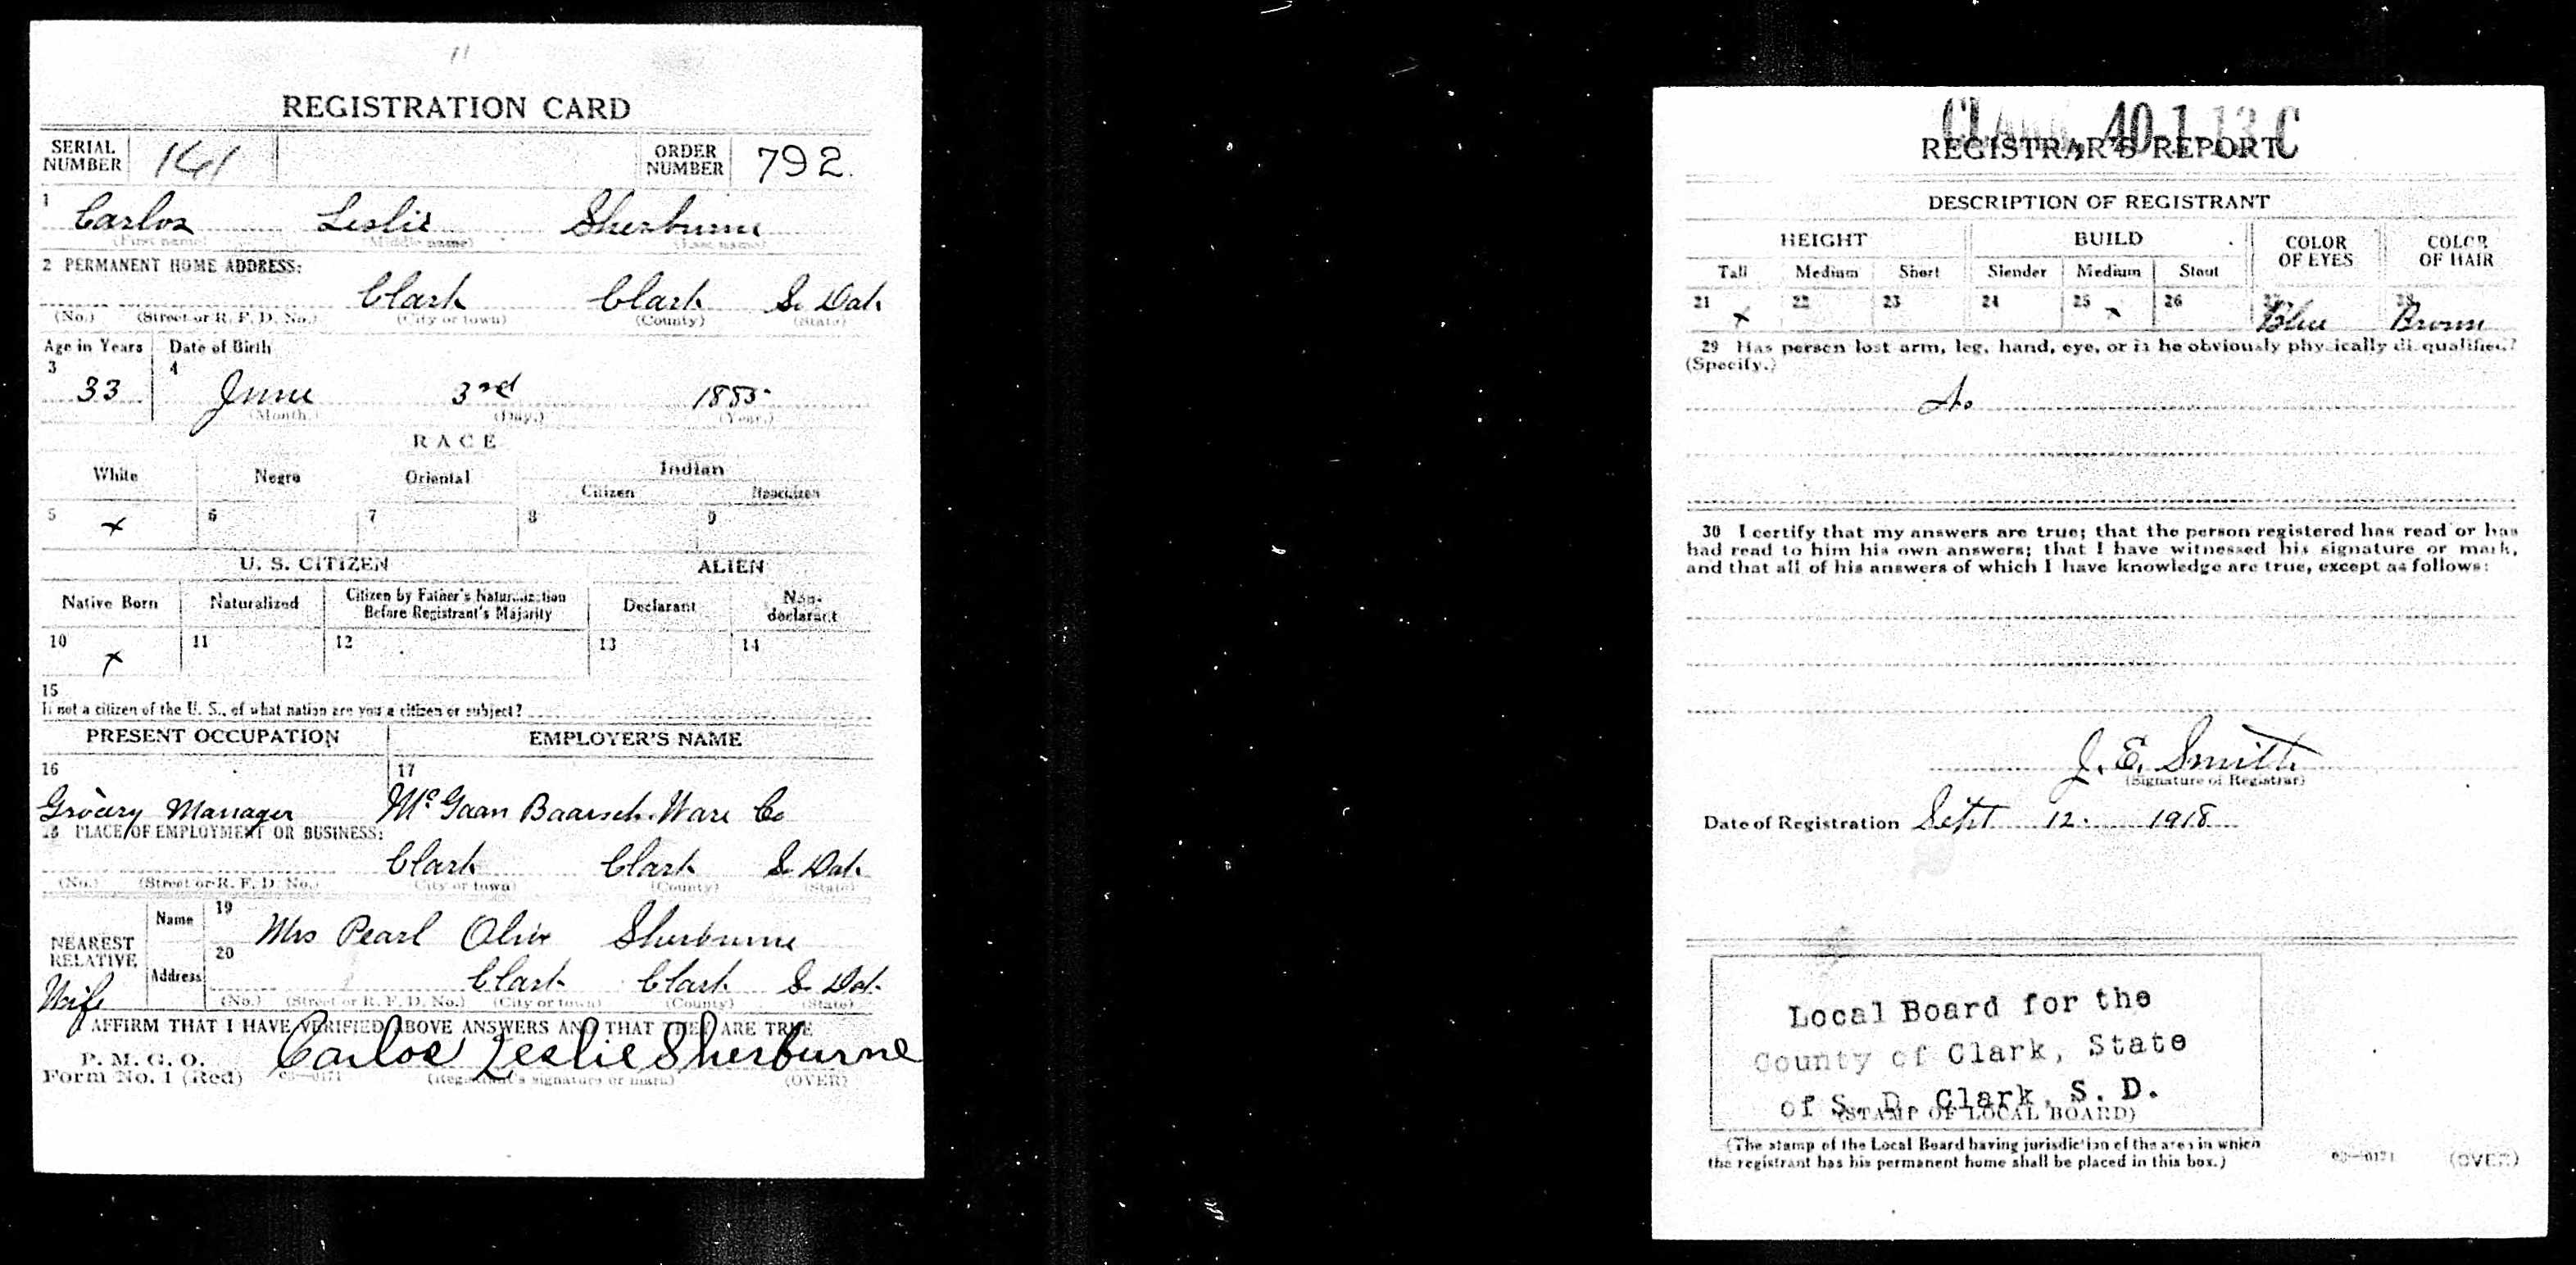 11
REGISTRATION CARD
SERIAL NUMBER 161 ORDER NUMBER 792.
1 Carlos Leslie Sherburne
(First name) (Middle name) (Last name)
2 PERMANENT HOME ADDRESS:
Clark Clark S. Dak.
(No.) (Street or R. F. D. No.) (City or town) (County) (State)
Age in Years Date of Birth
3 33 4 June 3rd 1885
(Month.) (Day.) (Year.)
RACE
White Negro Oriental Indian
Citizen Noncitizen
5 x 6 7 8 9
U. S. CITIZEN ALIEN
Native Born Naturalized Citizen by Father's Naturalization Before Registrant's Majority Declarant Non-declarant
10 x 11 12 13 14
15
If not a citizen of the U. S., of what nation are you a citizen or subject?
PRESENT OCCUPATION EMPLOYER'S NAME
16 17
Grocery Manager Mc Gaan Baarsch-Ware Co
18 PLACE OF EMPLOYMENT OR BUSINESS:
Clark Clark S. Dak.
(No.) (Street or R. F. D. No.) (City or town) (County) (State)
NEAREST RELATIVE Name 19 Mrs Pearl Olive Sherburne
Wife Address 20 Clark Clark S. Dak.
(No.) (Street or R. F. D. No.) (City or town) (County) (State)
AFFIRM THAT I HAVE VERIFIED ABOVE ANSWERS AND THAT THEY ARE TRUE
P. M. G. O.
Form No. 1 (Red) 03—0171 Carlos Leslie Sherburne
(Registrant's signature or mark) (OVER)
40-1-13 C
REGISTRAR'S REPORT
DESCRIPTION OF REGISTRANT
HEIGHT BUILD COLOR OF EYES COLOR OF HAIR
Tall Medium Short Slender Medium Stout
21 x 22 23 24 25 x 26 27 Blue 28 Brown
29 Has person lost arm, leg, hand, eye, or is he obviously physically disqualified?
(Specify.)
No
30 I certify that my answers are true; that the person registered has read or has
had read to him his own answers; that I have witnessed his signature or mark,
and that all of his answers of which I have knowledge are true, except as follows:
J. E. Smith
(Signature of Registrar)
Date of Registration Sept 12. 1918
Local Board for the
County of Clark, State
of S. D. Clark, S. D.
(STAMP OF LOCAL BOARD)
(The stamp of the Local Board having jurisdiction of the area in which
the registrant has his permanent home shall be placed in this box.)
03—0171 (OVER)